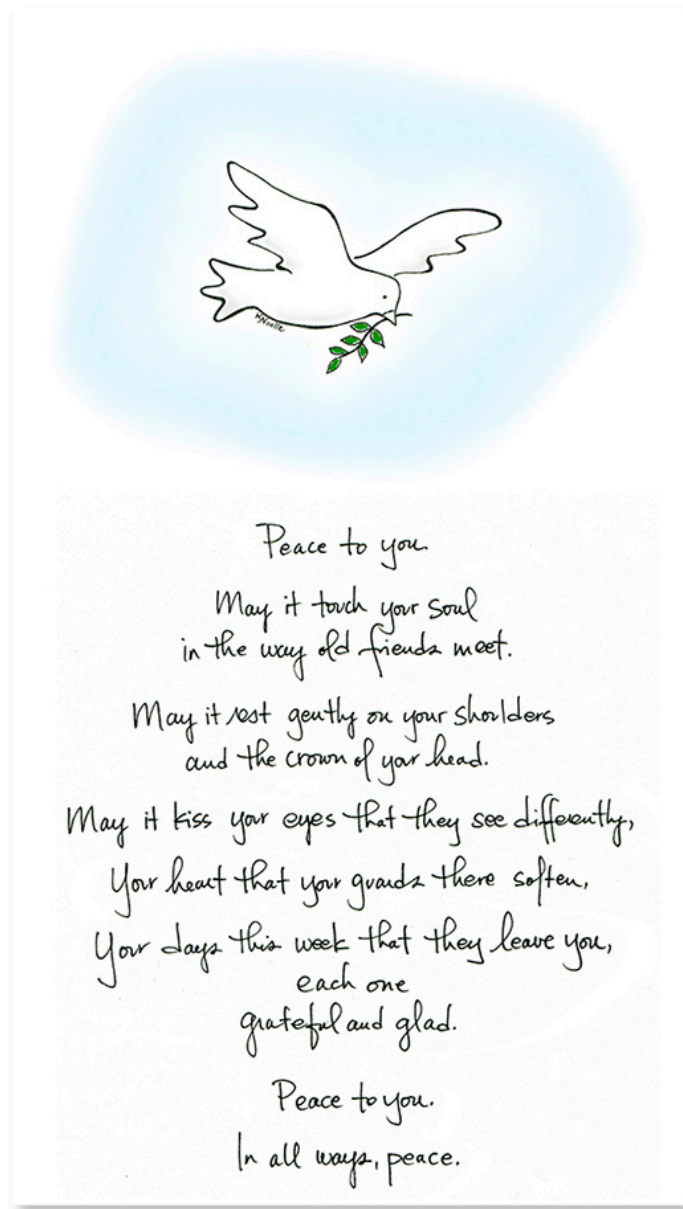 KNoelle
Peace to you.
May it touch your soul
in the way old friends meet.
May it rest gently on your shoulders
and the crown of your head.
May it kiss your eyes that they see differently,
Your heart that your guards there soften,
Your days this week that they leave you,
each one
grateful and glad.
Peace to you.
In all ways, peace.